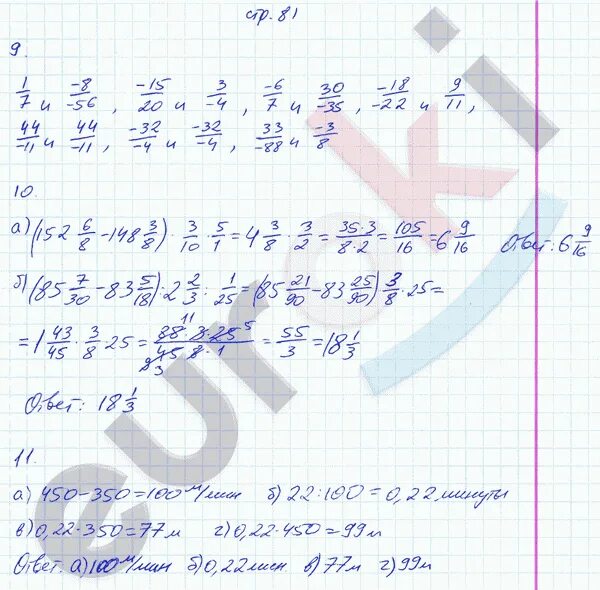 стр. 81
9.
1/7 и -8/-56, -15/20 и 3/-4, -6/7 и 30/-35, -18/-22 и 9/11,
44/-11 и 44/-11, -32/-4 и -32/-4, 33/-88 и -3/8
10.
а) (152 6/8 - 148 3/8) · 3/10 · 5/1 = 4 3/8 · 3/2 = 35·3/8·2 = 105/16 = 6 9/16 Ответ: 6 9/16
б) (85 7/30 - 83 5/18) : 2 2/3 : 1/25 = (85 21/90 - 83 25/90) · 3/8 · 25 =
= 1 43/45 · 3/8 · 25 = 88·3·25/45·8·1 = 55/3 = 18 1/3
Ответ: 18 1/3
11.
а) 450-350=100 м/мин б) 22:100=0,22 минуты
в) 0,22·350=77м г) 0,22·450=99м
Ответ: а) 100 м/мин б) 0,22мин в) 77м г) 99м
euroki